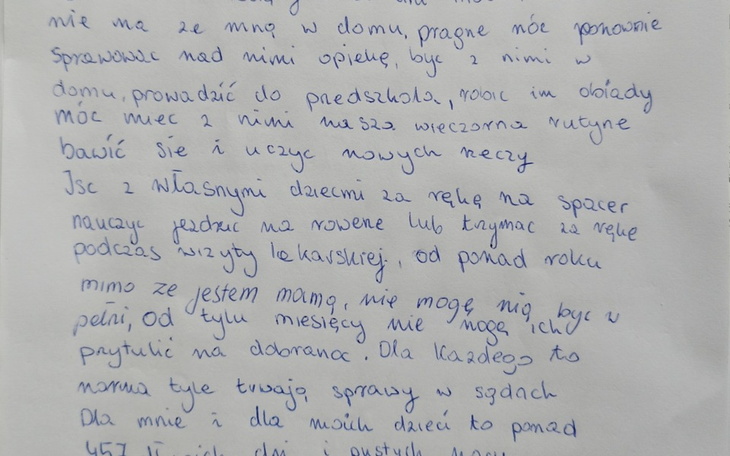 nie ma ze mną w domu, pragne móc ponownie
Sprawowac nad nimi opiekę, być z nimi w
domu, prowadzić do predszkola, robic im obiady
móc miec z nimi nasza wieczorna rutyne
bawić sie i uczyc nowych rzeczy
Isc z własnymi dziecmi za rękę na spacer
nauczyc jezdzic na rowerze lub trzymac za rękę
podczas wizyty lekarskiej, od ponad roku
mimo ze jestem mamą, nie mogę nią być w
pełni, od tylu miesięcy nie mogę ich
prytulić na dobranoc. Dla każdego to
norma tyle trwają sprawy w sądach
Dla mnie i dla moich dzieci to ponad
457 dni i pustych nocy